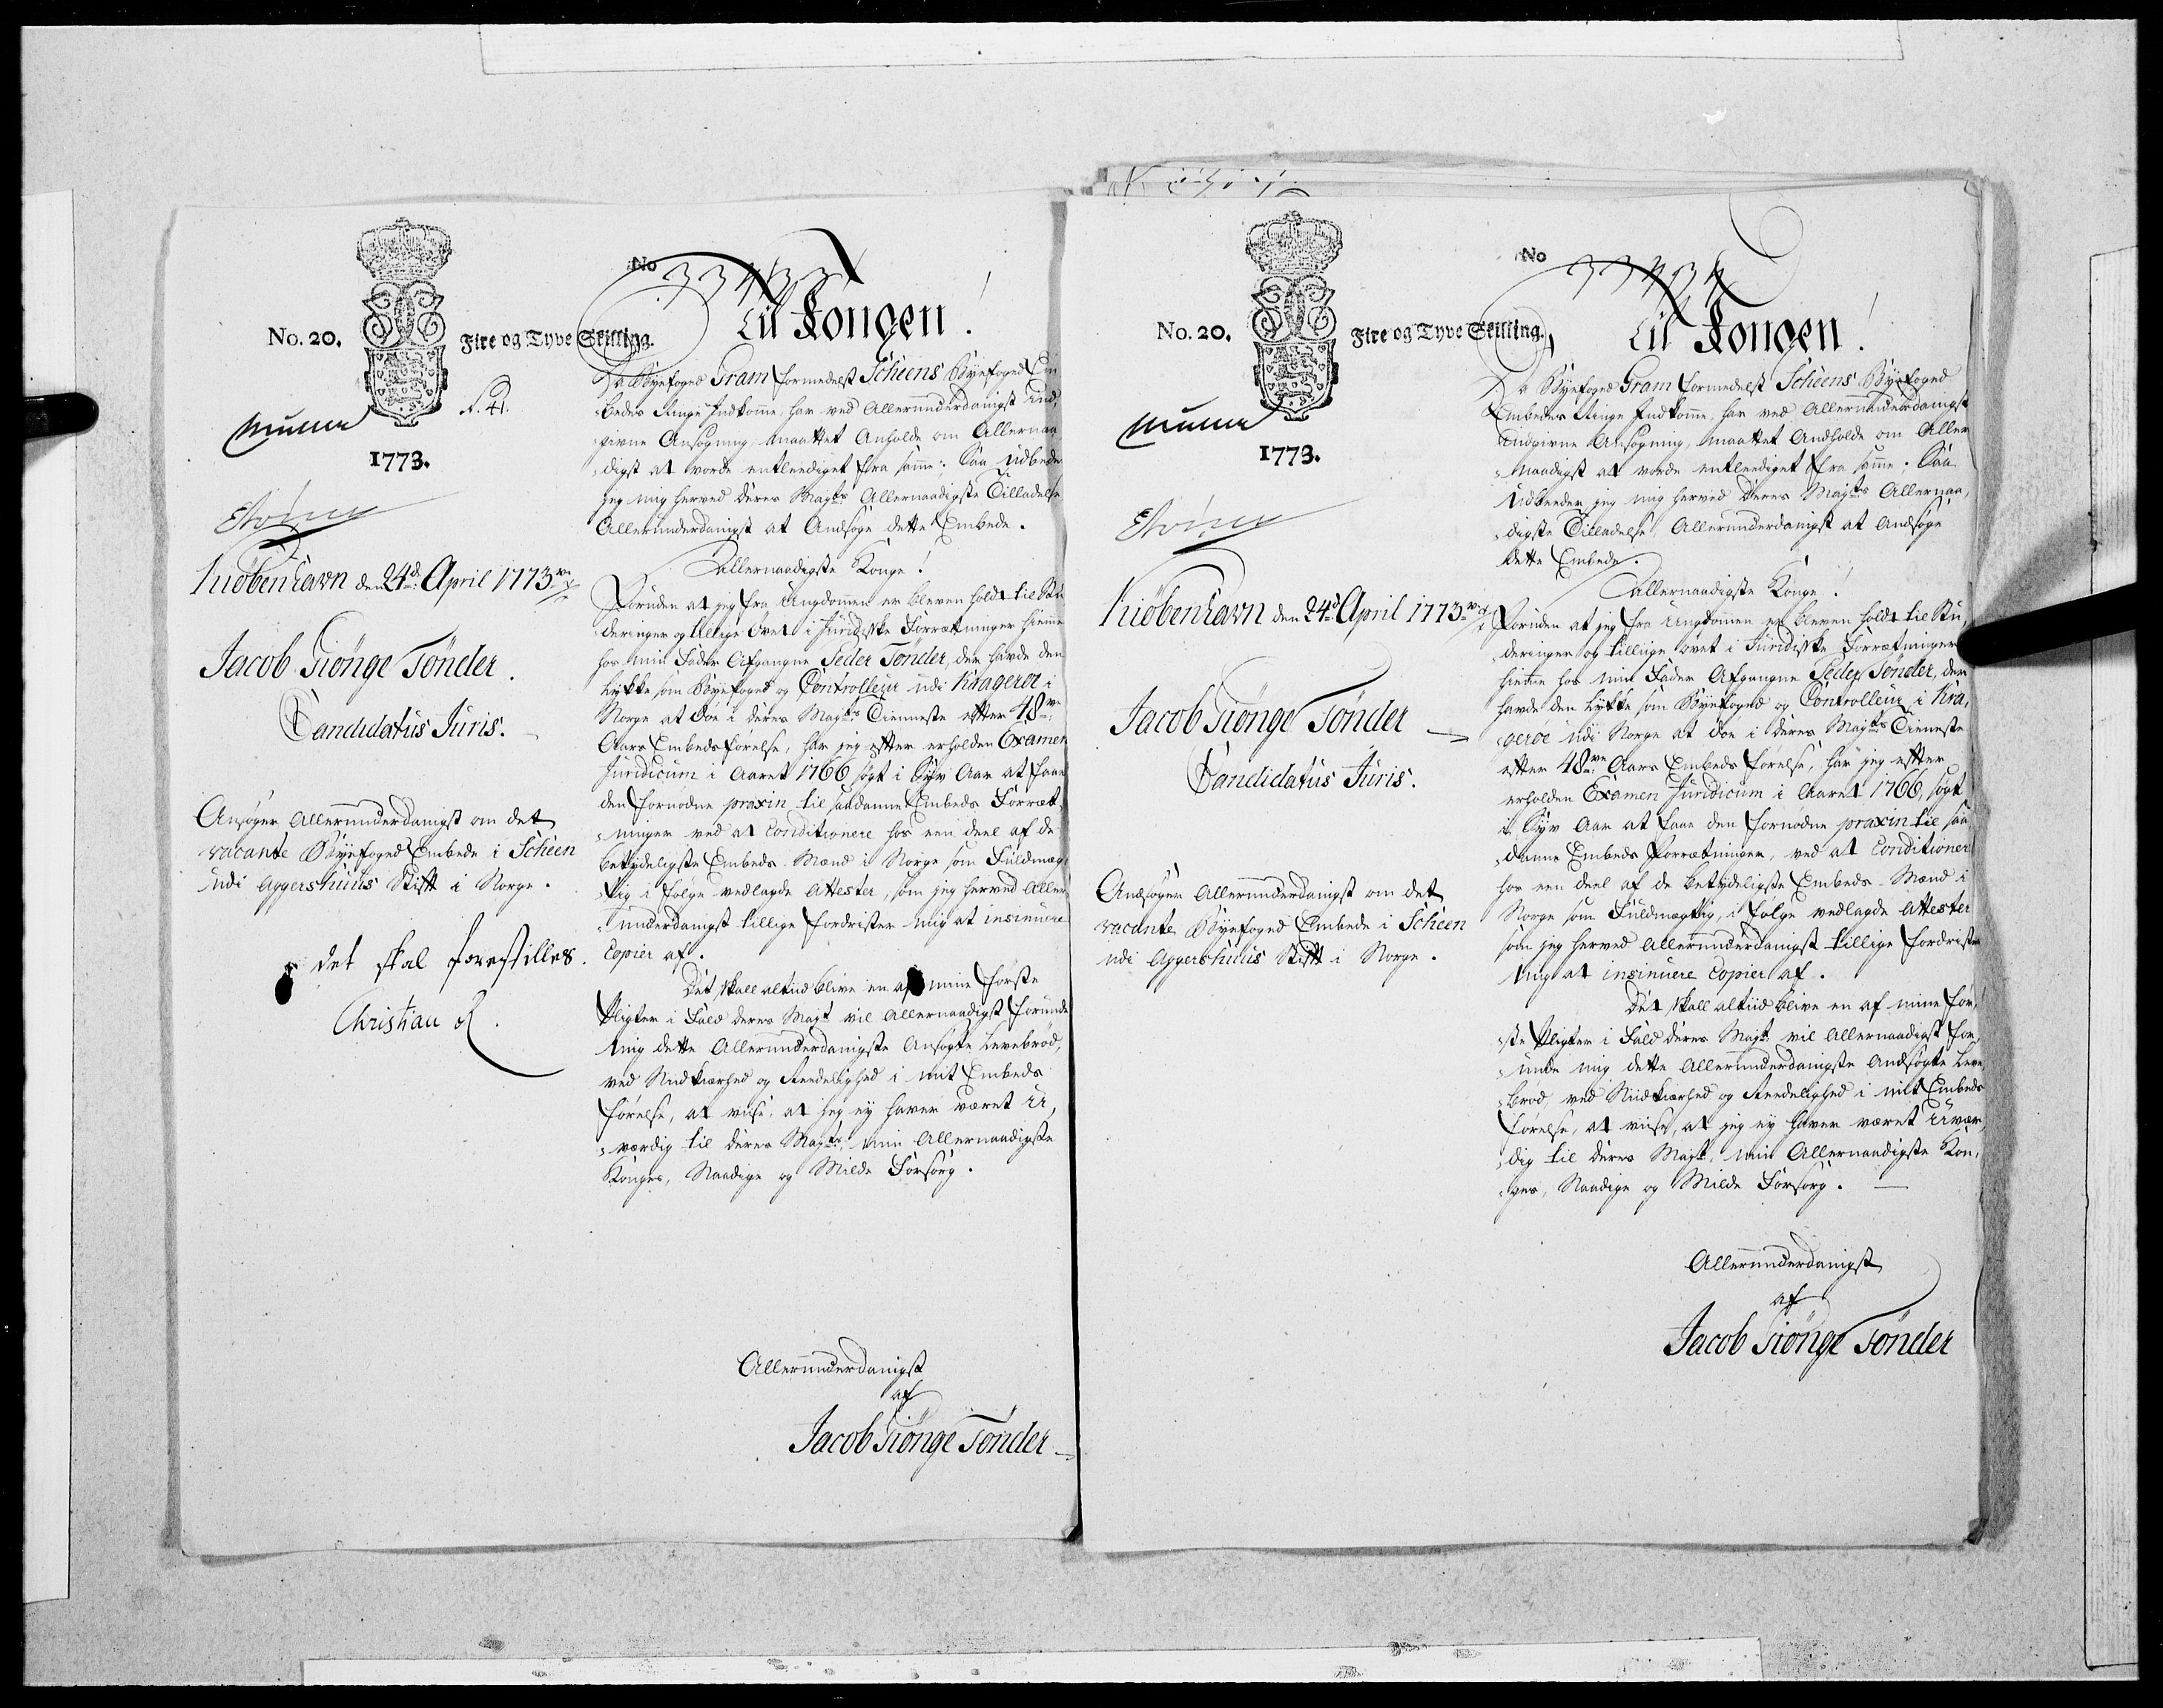 No. 20.
Fire og Tyve Skilling.
1773.
No
33433
Kiöbenhavn den 24d: April 1773ve
Jacob Giönge Tönder.
Candidatus Juris.
Ansöger Allerunderdanigst om det
vacante Byefoged Embede i Scheen
udi Aggershuus Stift i Norge.
det skal forestilles.
Christian R.
Til Kongen!
Da Byefoged Gram formedelst Scheens Byefoged Em
bedes Ringe Indkomme har ved Allerunderdanigst Ind,
givne Ansögning maattet Anholde om Allernaa
digst at vorde entlediget fra samme: Saa udbeder
jeg mig herved Deres Mayts Allernaadigste Tilladelse
Allerunderdanigst at Andsöge dette Embede.
Allernaadigste Konge!
Foruden at jeg fra Ungdommen er bleven holdt til Stu
deringer og tillige övet i Juridiske Forrætninger hiemme
hos min Fader Afgangne Peder Tönder, der havde den
Lykke som Byefoged og Controlleur udi Kragerøe i
Norge at döe i deres Mayts Tienneste efter 48ve
Aars Embeds förelse, har jeg efter erholden Examen
Juridicum i Aaret 1766 sögt i Syv Aar at faae
den fornödne praxin til saadanne Embeds Forræt,
ninger ved at Conditionere hos een deel af de
betydeligste Embeds Mænd i Norge som Fuldmæg,
tig i fölge vedlagde Attester, som jeg herved Aller
underdanigst tillige fordrister mig at insinuere
Copier af.
Det skall altiid blive en af mine förste
Pligter i Fald deres Mayt vil Allernaadigst forunde
mig dette Allerunderdanigste Ansögte Levebröd,
ved Nidkiærhed og Reedelighed i mit Embeds
förelse, at viise, at jeg ey haver været U,
værdig til deres Mayts min Allernaadigste
Konges, Naadige og Milde Forsorg.
Allerunderdanigst
af
Jacob Giönge Tönder
No. 20.
Fire og Tyve Skilling.
1773.
No
33434
Kiöbenhavn den 24d: April 1773ve
Jacob Giönge Tönder
Candidatus Juris.
Andsöger Allerunderdanigst om det
vacante Byefoged Embede i Scheen
udi Aggershuus Stift i Norge.
Til Kongen!
Da Byefoged Gram formedelst Scheens Byefoged
Embedes Ringe Indkomme, har ved Allerunderdanigst
Indgivne Ansögning, maattet Andholde om Aller
naadigst at vorde entlediget fra samme: Saa
Udbeeder jeg mig herved Deres Mayts Allernaa,
digste Tilladelse Allerunderdanigst at Andsöge
dette Embede.
Allernaadigste Konge!
Foruden at jeg fra Ungdommen er bleven holdt til Stu,
deringer og tillige övet i Juridiske Forrætninger
hiemme hos min Fader Afgangne Peder Tönder, der
havde den Lykke som Byefoged og Controlleur i Kra,
geröe udi Norge at döe i deres Mayts Tienneste
efter 48ve Aars Embeds förelse, har jeg efter
erholden Examen Juridicum i Aaret 1766, sögt
i Syv Aar at faae den fornödne praxin til saa
danne Embeds Forrætninger, ved at Conditionere
hos een deel af de betydeligste Embeds-Mænd i
Norge som Fuldmægtig, i fölge vedlagde Attester
som jeg herved Allerunderdanigst tillige fordrister
mig at insinuere Copier af.
Det skall altiid blive en af mine för,
ste Pligter i Fald deres Mayt vil Allernaadigst for,
unde mig dette Allerunderdanigste Andsögte Leve,
bröd, ved Nidkiærhed og Reedelighed i mit Embeds
förelse, at viise, at jeg ey haver været Uvær,
dig til deres Mayts, min Allernaadigste Kon,
ges, Naadige og Milde Forsorg.
Allerunderdanigst
af
Jacob Giönge Tönder